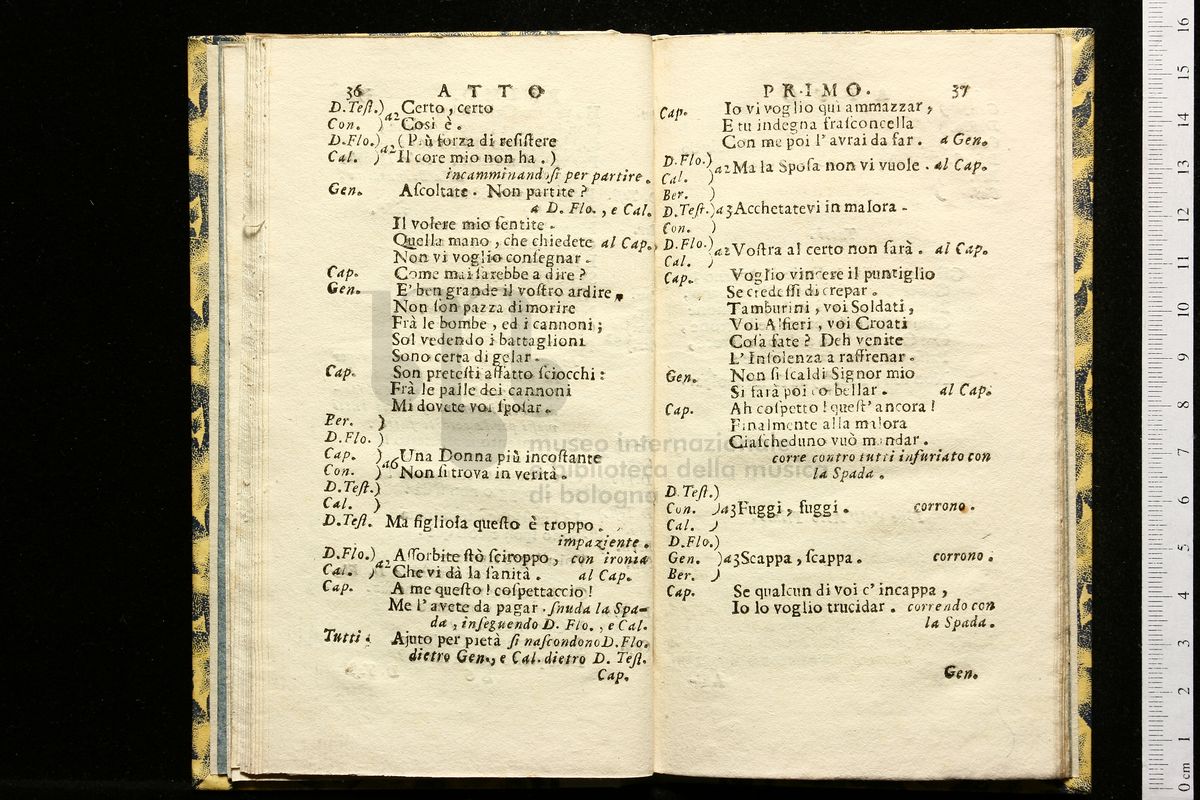 36 ATTO
D.Teſt.) a2 Certo, certo
Con. ) Cosi è.
D.Flo.) a2 (Più forza di reſiſtere
Cal. ) Il core mio non ha.)
incamminandoſi per partire.
Gen. Aſcoltate. Non partite?
a D. Flo., e Cal.
Il volere mio ſentite.
Quella mano, che chiedete al Cap.,
Non vi voglio conſegnar.
Cap. Come mai ſarebbe a dire?
Gen. E' ben grande il voſtro ardire,
Non ſon pazza di morire
Frà le bombe, ed i cannoni;
Sol vedendo i battaglioni
Sono certa di gelar.
Cap. Son preteſti affatto ſciocchi:
Frà le palle dei cannoni
Mi dovete voi ſpoſar.
Ber. )
D.Flo. )
Cap. ) a6 Una Donna più incoſtante
Con. ) Non ſi trova in verità.
D.Teſt.)
Cal. )
D.Teſt. Ma figliola queſto è troppo.
impaziente.
D.Flo.) a2 Aſſorbite ſtò ſciroppo, con ironia
Cal. ) Che vi dà la ſanità. al Cap.
Cap. A me queſto! coſpettaccio!
Me l'avete da pagar. ſnuda la Spa-
da, inſeguendo D. Flo., e Cal.
Tutti. Ajuto per pietà ſi naſcondono D. Flo.
dietro Gen., e Cal. dietro D. Teſt.
Cap.
PRIMO. 37
Cap. Io vi voglio qui ammazzar,
E tu indegna fraſconcella
Con me poi l'avrai da far. a Gen.
D.Flo.) a2 Ma la Spoſa non vi vuole. al Cap.
Cal. )
Ber. )
D.Teſt.) a3 Acchetatevi in malora.
Con. )
D.Flo.) a2 Voſtra al certo non ſarà. al Cap.
Cal. )
Cap. Voglio vincere il puntiglio
Se credeſſi di crepar.
Tamburini, voi Soldati,
Voi Alfieri, voi Croati
Coſa fate? Deh venite
L'Inſolenza a raffrenar.
Gen. Non ſi ſcaldi Signor mio
Si farà poi co bellar. al Cap.
Cap. Ah coſpetto! queſt' ancora!
Finalmente alla malora
Ciaſcheduno vuò mandar.
corre contro tutti infuriato con
la Spada.
D. Teſt.)
Con. ) a3 Fuggi, fuggi. corrono.
Cal. )
D.Flo.)
Gen. ) a3 Scappa, ſcappa. corrono.
Ber. )
Cap. Se qualcun di voi c'incappa,
Io lo voglio trucidar. correndo con
la Spada.
Gen.
museo internazionale
e biblioteca della musica
di bologna
0 cm 1 2 3 4 5 6 7 8 9 10 11 12 13 14 15 16